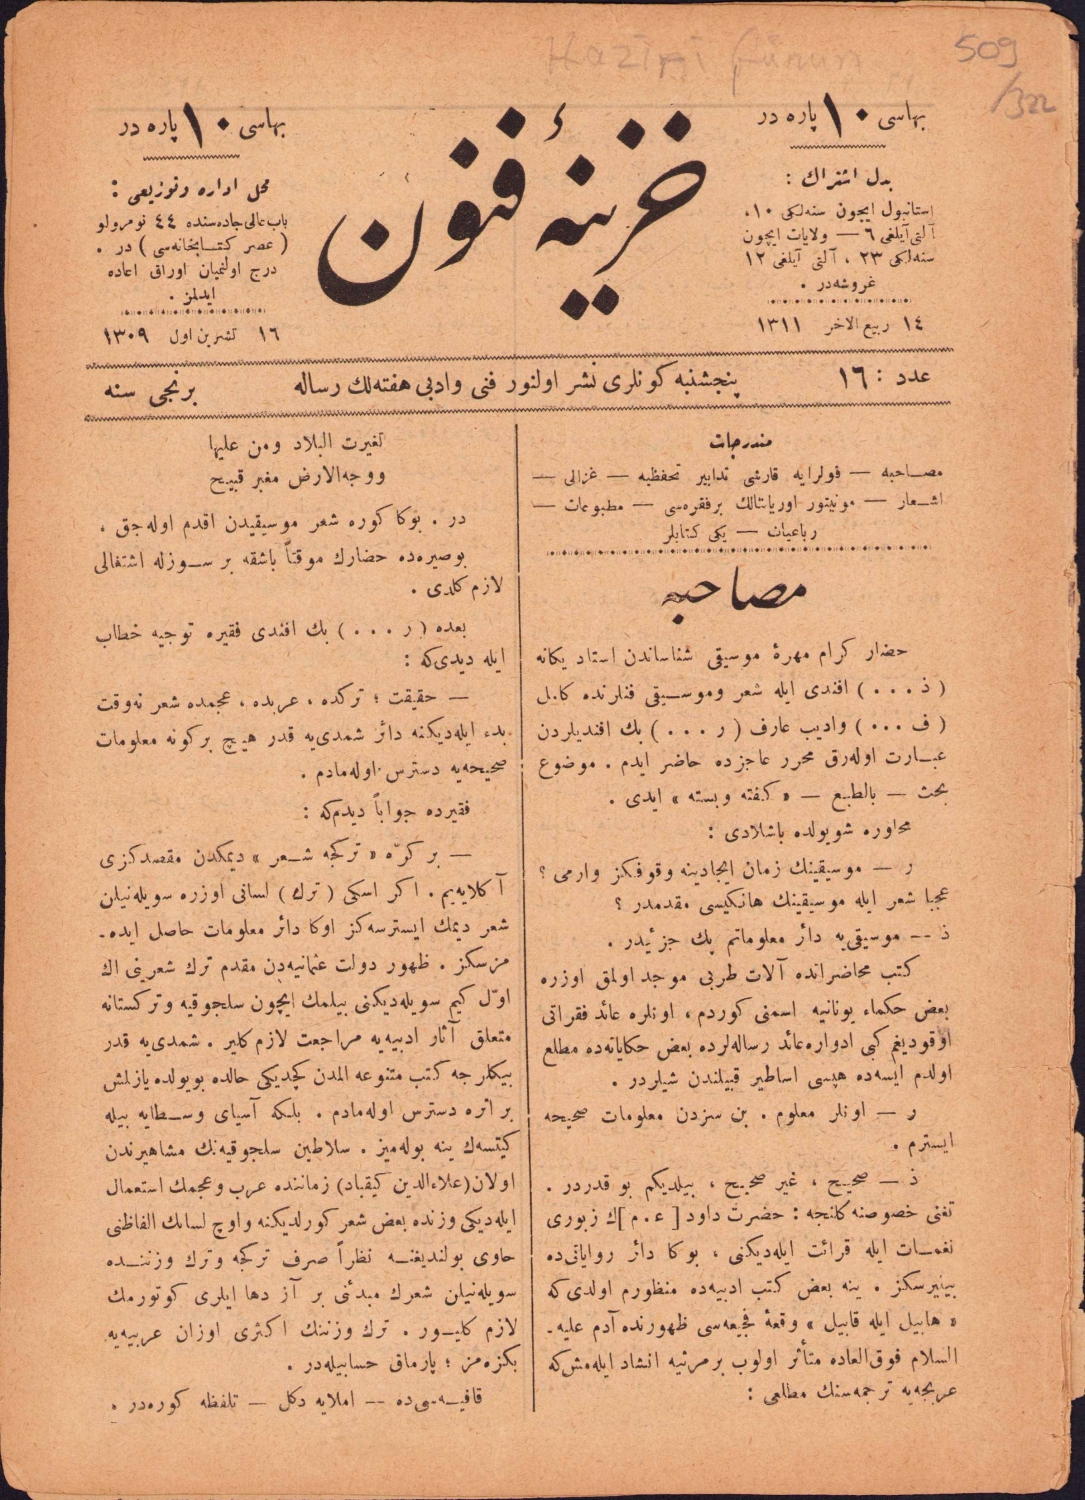 Hazini fünun
509
/322
بهاسی ۱۰ پاره در
بدل اشتراك :
استانبول ایچون سنه‌لکی ۱۰،
آلتی‌آیلغی ۶ — ولایات ایچون
سنه‌لکی ۲۳ ، آلتی آیلغی ۱۲
غروشه‌در .
۱٤ ربیع الاخر ۱۳۱۱
خزینهٔ فنون
بهاسی ۱۰ پاره در
محل اداره وتوزیعی :
باب‌عالی‌جاده‌سنده ٤٤ نومرولو
( عصر کتــابخانه‌سی ) در .
درج اولنمیان اوراق اعاده
ایدلمز .
۱۶ تشرین اول ۱۳۰۹
عدد : ۱۶
پنجشنبه کونلری نشر اولنور فنی وادبی هفته‌لك رساله
برنجی سنه
مندرجات
مصــاحبه — قولرایه قارشی تدابیر تحفظیه — غزالی —
اشــعار — مونیتور اوریانتالك برفقره‌سی — مطبوعات —
رباعیات — یکی کتابلر
مصاحبه
حضار کرام مهرهٔ موسیقی شناساندن استاد یکانه
( ذ . . . ) افندی ایله شعر وموســیقی فنلرنده کامل
( ف . . . ) وادیب عارف ( ر . . . ) بك افندیلردن
عبــارت اوله‌رق محرر عاجزده حاضر ایدم . موضوع
بحث — بالطبع — « کفته وبسته » ایدی .
محاوره شویولده باشلادی :
ر — موسیقینك زمان ایجادینه وقوفکز وارمی ؟
عجبا شعر ایله موسیقینك هانکیسی مقدمدر ؟
ذ — موسیقی‌یه دائر معلوماتم پك جزئیدر .
کتب محاضراتده آلات طربی موجد اولمق اوزره
بعض حکماء یونانیه اسمنی کوردم ، اونلره عائد فقراتی
اوقودیغم کبی ادواره‌عائد رساله‌لرده بعض حکایاته‌ده مطلع
اولدم ایسه‌ده هپسی اساطیر قبیلندن شیلردر .
ر — اونلر معلوم . بن سزدن معلومات صحیحه
ایسترم .
ذ — صحیح ، غیر صحیح ، بیلدیکم بو قدردر .
تغنی خصوصنه‌کلنجه : حضرت داود [ ع . م ]ك زبوری
نغمــات ایله قرائت ایله‌دیکنی ، بوکا دائر روایاتی‌ده
بیلیرسکز . ینه بعض کتب ادبیه‌ده منظورم اولدی‌که
« هابیل ایله قابیل » وقعهٔ فجیعه‌سی ظهورنده آدم علیه-
السلام فوق‌العاده متأثر اولوب برمرثیه انشاد ایله‌مش‌که
عربجه‌یه ترجمه‌سنك مطلعی :
تغیرت البلاد ومن علیها
ووجه‌الارض مغبر قبیح
در . بوکا کوره شعر موسیقیدن اقدم اوله‌جق .
بوصیره‌ده حضارك موقتاً باشقه بر ســوزله اشتغالی
لازم کلدی .
بعده ( ر . . . ) بك افندی فقیره توجیه خطاب
ایله دیدی‌که :
— حقیقت ؛ ترکده ، عربده ، عجمده شعر نه‌وقت
بدء ایله‌دیکنه دائر شمدی‌یه قدر هیچ برکونه معلومات
صحیحه‌یه دسترس اوله‌مادم .
فقیرده جواباً دیدم‌که :
— بر کرّه « ترکجه شــعر » دیمکدن مقصدکزی
آکلایه‌یم . اکر اسکی ( ترك ) لسانی اوزره سویله‌نیلن
شعر دیمك ایسترسه‌کز اوکا دائر معلومات حاصل ایده-
مزسکز . ظهور دولت عثمانیه‌دن مقدم ترك شعرینی اك
اوّل کیم سویله‌دیکنی بیلمك ایچون سلجوقیه وترکستانه
متعلق آثار ادبیه‌یه مراجعت لازم کلیر . شمدی‌یه قدر
بیکلرجه کتب متنوعه المدن کچدیکی حالده بویولده یازلمش
بر اثره دسترس اوله‌مادم . بلکه آسیای وســطایه بیله
کیتسه‌ك ینه بوله‌میز . سلاطین سلجوقیه‌نك مشاهیرندن
اولان(علاءالدین کیقباد) زماننده عرب وعجمك استعمال
ایله‌دیکی وزنده بعض شعر کورلدیکنه واوچ لسانك الفاظنی
حاوی بولندیغنــه نظراً صرف ترکجه وترك وزننــده
سویله‌نیلن شعرك مبدئنی بر آز دها ایلری کوتورمك
لازم کلیــور . ترك وزننك اکثری اوزان عربیه‌یه
بکزه‌مز ؛ پارماق حسابیله‌در .
قافیــه‌سی‌ده — املایه دکل — تلفظه کوره‌در .